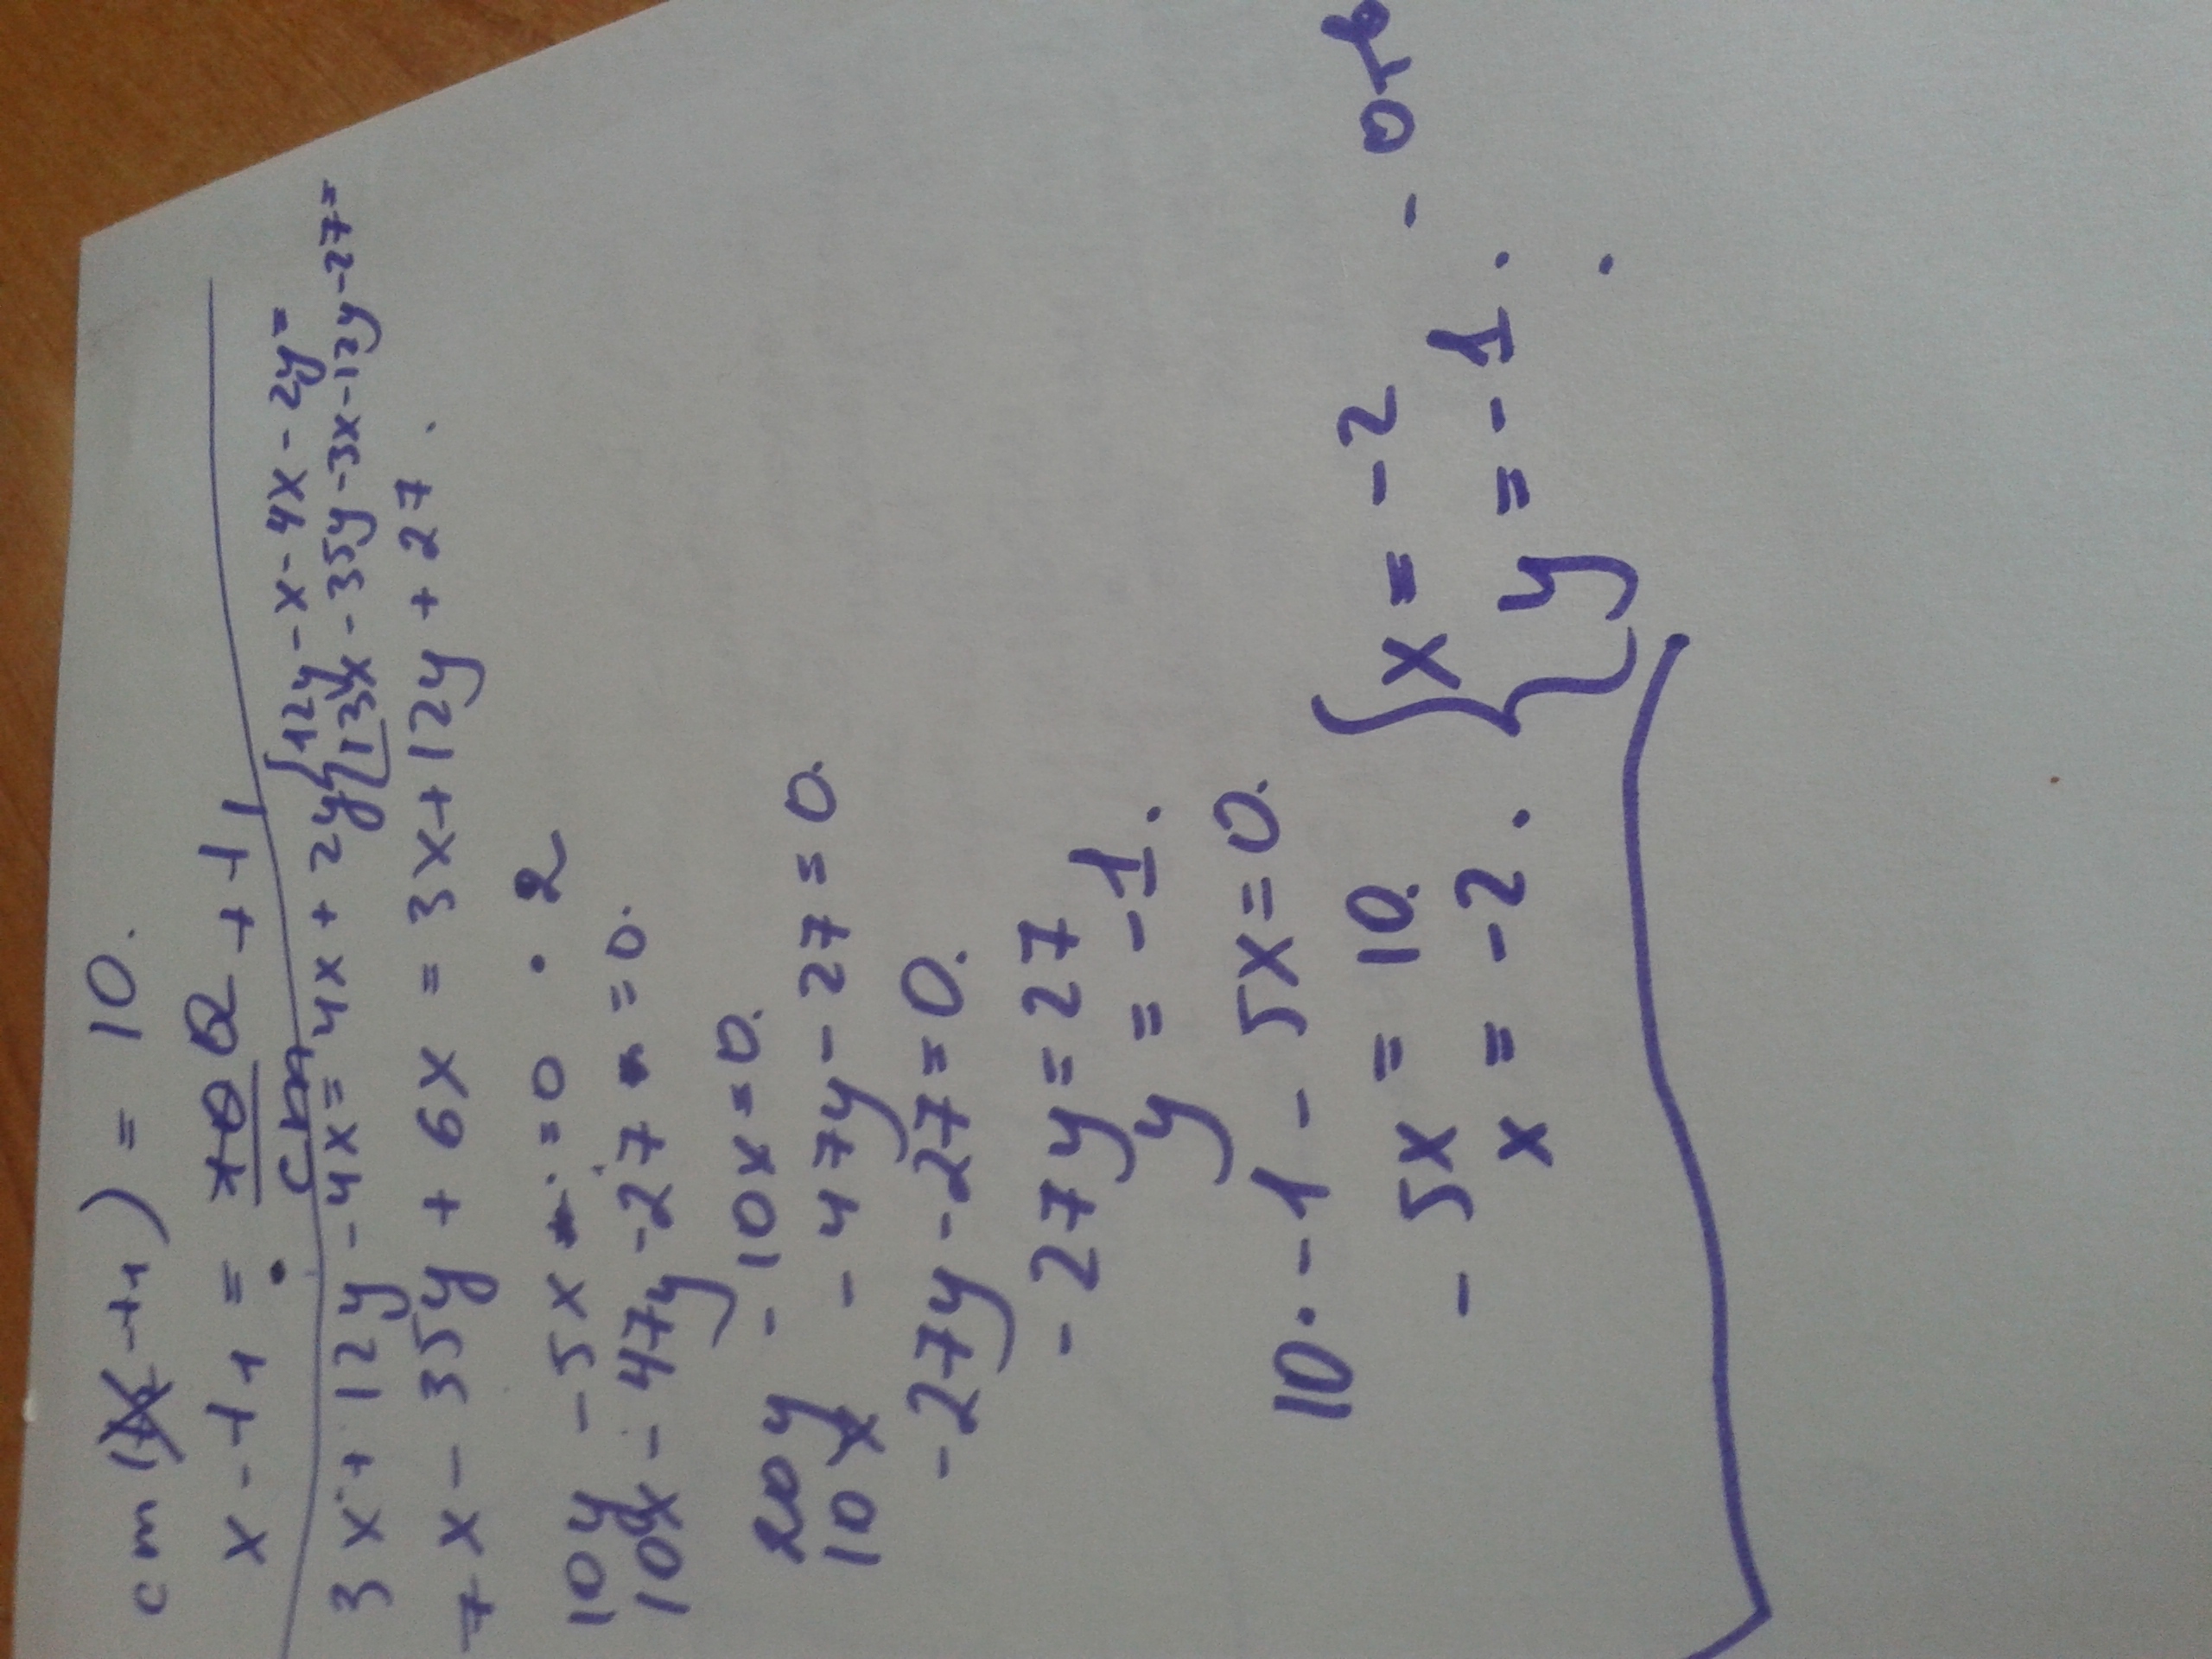 = 10.
x - 11 =
3x + 12y - 4x = 4x + 2y { 12y - x - 4x - 2y =
13x - 35y - 3x - 12y - 27 =
7x - 35y + 6x = 3x + 12y + 27.
10y - 5x = 0 · 2
10x - 47y - 27 = 0.
20y - 10x = 0.
10x - 47y - 27 = 0.
-27y - 27 = 0.
-27y = 27
y = -1.
10 · -1 - 5x = 0.
-5x = 10.
x = -2.
{ x = -2 -
y = -1.